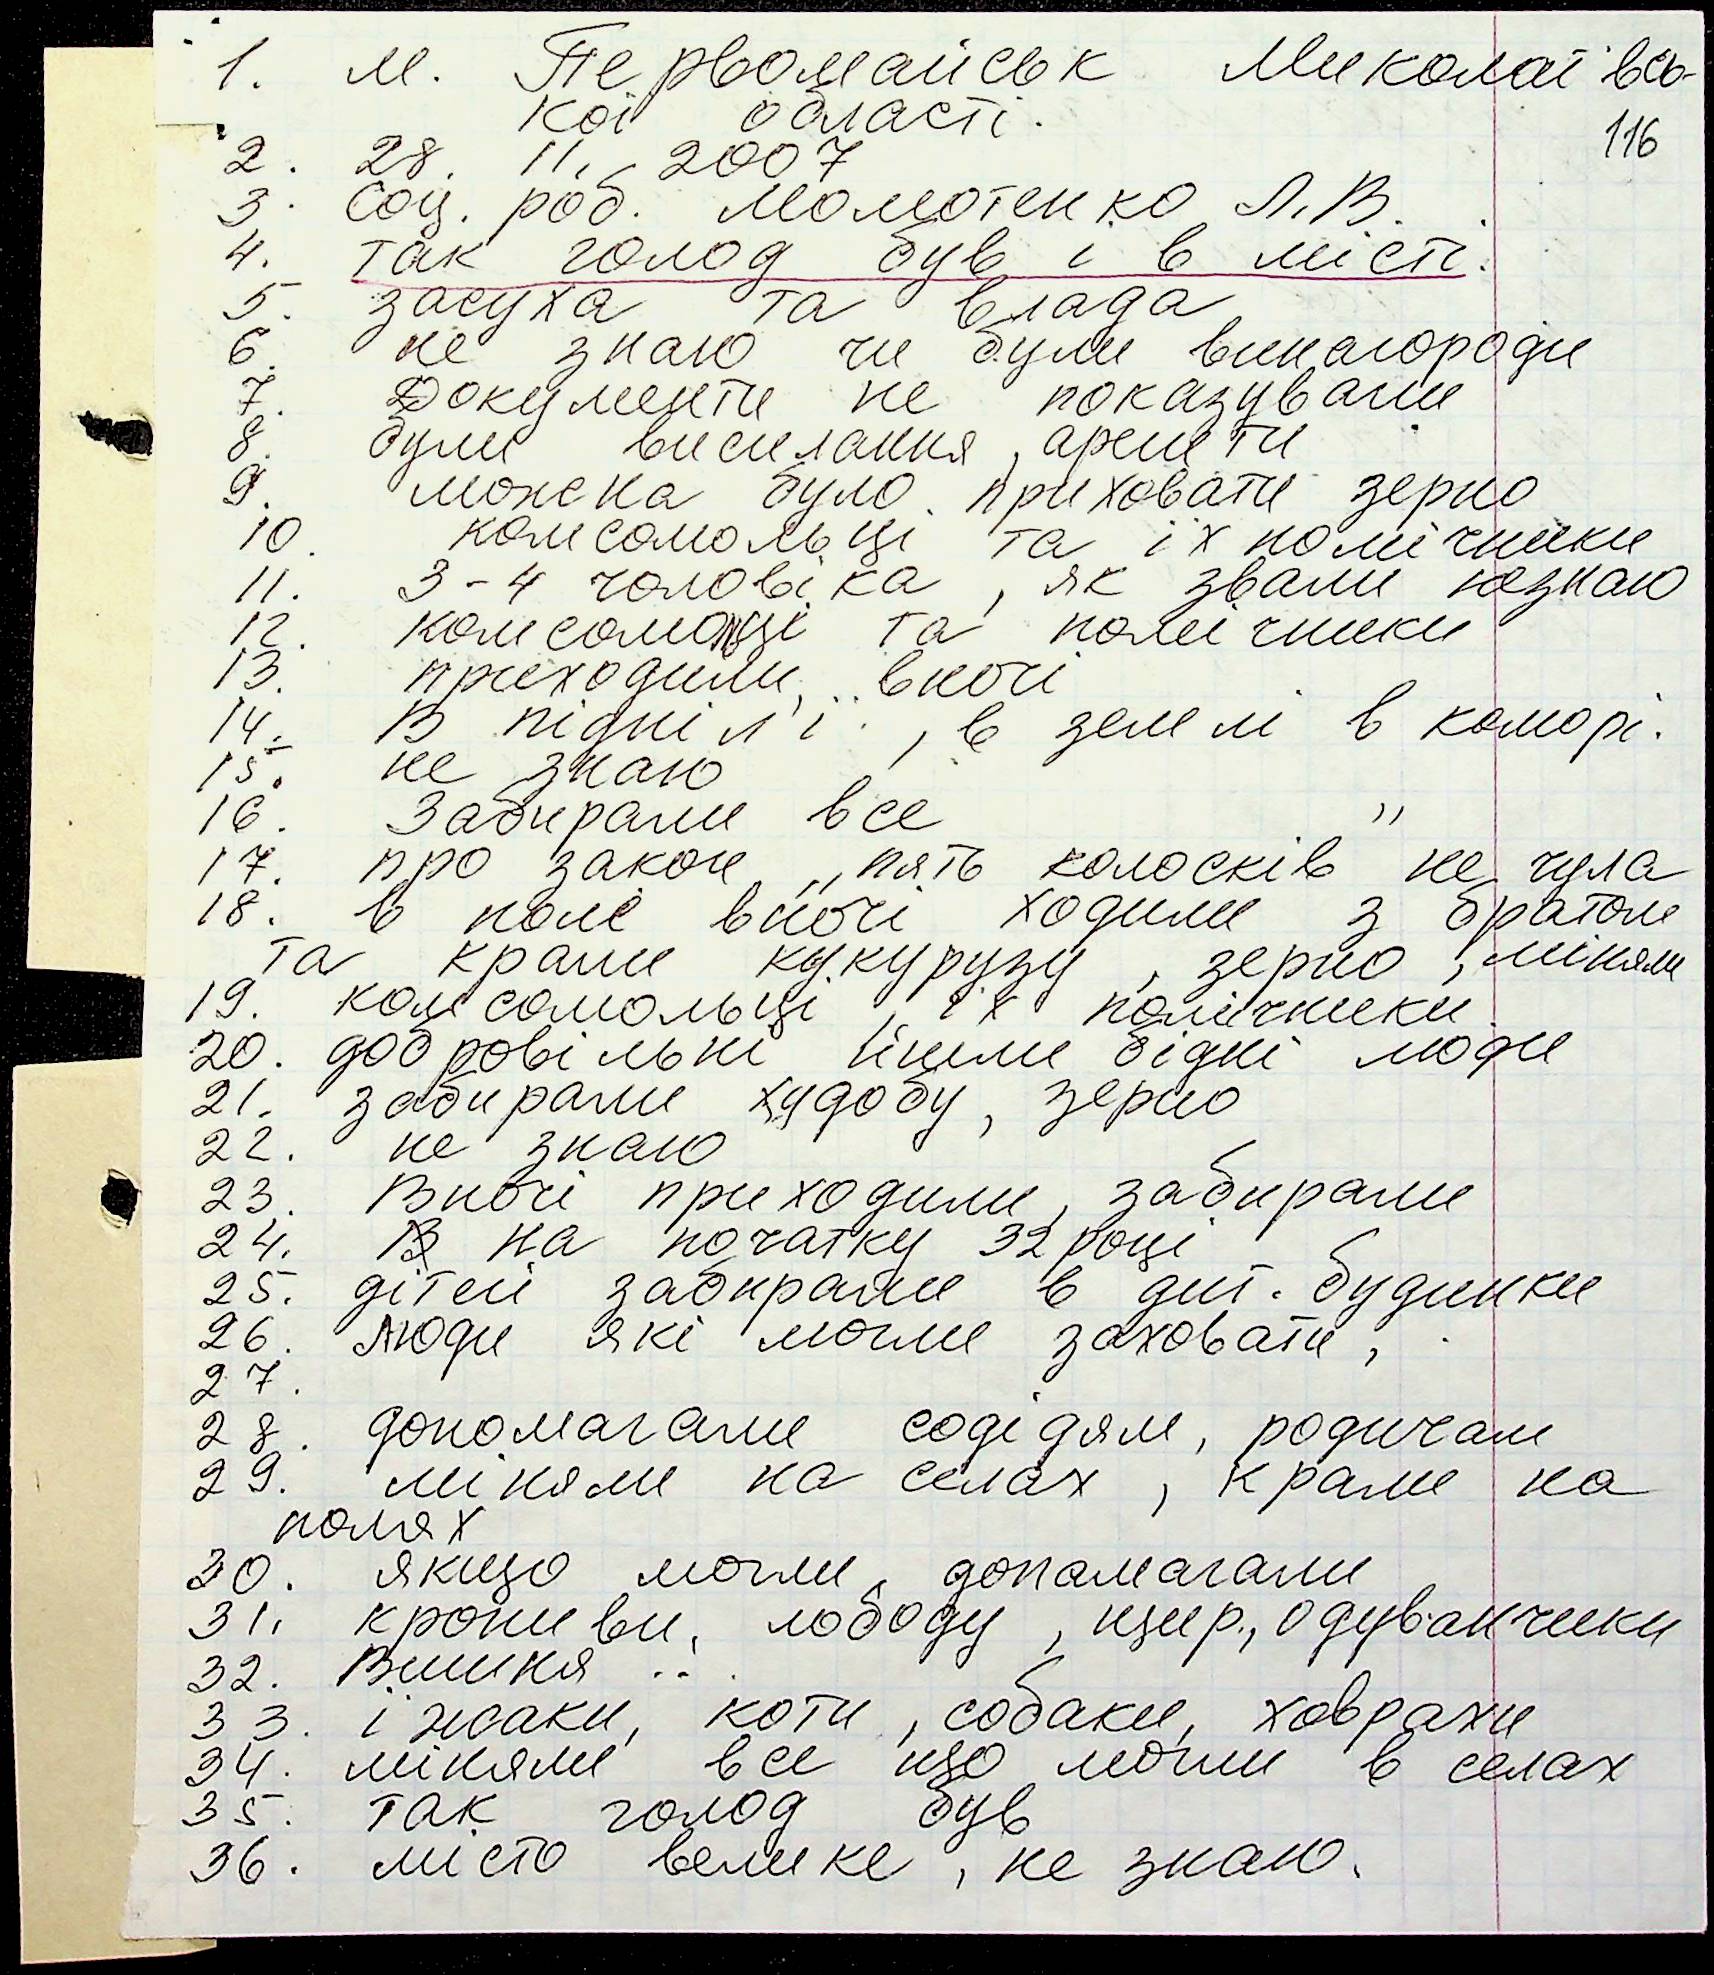 1. м. Первомайськ Миколаївсь-
кої області.
116
2. 28. 11. 2007
3. Соц. роб. Момотенко Л.В.
4. так голод був і в місті.
5. засуха та влада
6. не знаю чи були винагороди
7. Документи не показували
8. були висилання, арешти
9. можна було приховати зерно
10. комсомольці та їх помічники
11. 3-4 чоловіка, як звали незнаю
12. комсомолці та помічники
13. приходили вночі
14. В підпіл'ї, в землі в коморі.
15. не знаю
16. Забирали все
17. про закон „пять колосків" не чула
18. в полі вночі ходили з братом
та крали кукурузу, зерно, міняли
19. комсомольці, їх помічники
20. добровільні йшли бідні люди
21. забирали худобу, зерно
22. не знаю
23. Вночі приходили, забирали
24. на початку 32 році
25. дітей забирали в дит. будинки
26. люди які могли заховати,
27.
28. допомагали содідям, родичам
29. міняли на селах, крали на
полях
30. якщо могли, допамагали
31. кропиви, лободу, щир., одуванчики
32. Вишня
33. їжаки, коти, собаки, ховрахи
34. міняли все що могли в селах
35. так голод був
36. місто велике, не знаю.